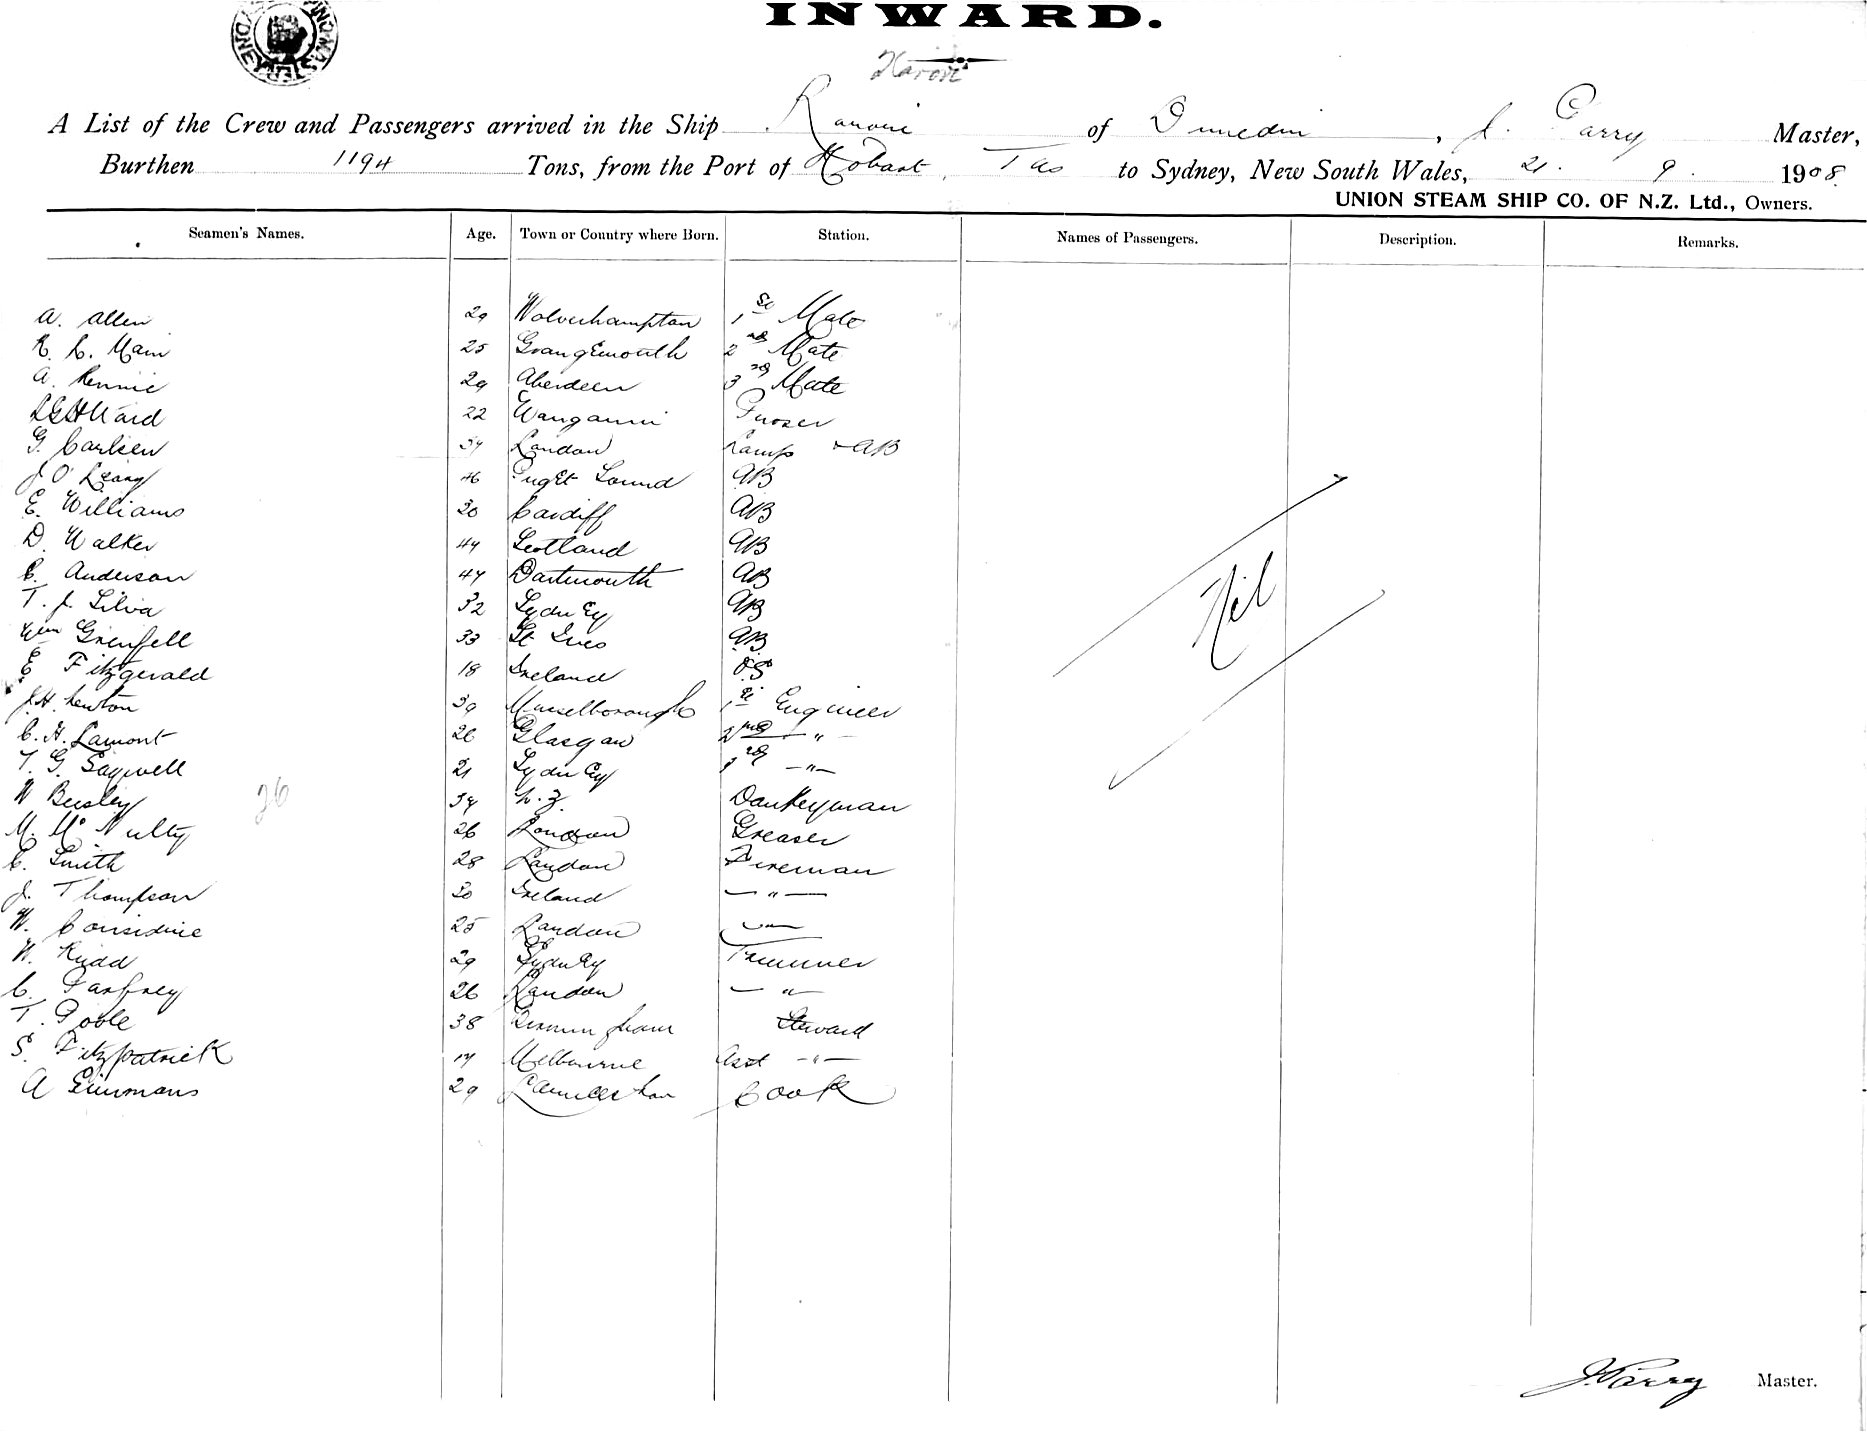 INWARD.
SYDNEY
A List of the Crew and Passengers arrived in the Ship of Dunedin, J. Parry Master,
Burthen 1194 Tons, from the Port of Hobart, Tas to Sydney, New South Wales, 21. 9. 1908.
UNION STEAM SHIP CO. OF N.Z. Ltd., Owners.
Seamen's Names. Age. Town or Country where Born. Station. Names of Passengers. Description. Remarks.
A. Allen 29 Wolverhampton 1st Mate
R. C. Main 25 Grangemouth 2nd Mate
A. Rennie 29 Aberdeen 3rd Mate
Ward 22 Wanganui Purser
G. Carlsen 34 London Lamps & AB
J. O'Leary 46 Puget Sound AB
E. Williams 30 Cardiff AB
D. Walker 44 Scotland AB
C. Anderson 47 Dartmouth AB
T. J. Silva 32 Sydney AB
Wm Grenfell 33 St Ives AB
E Fitzgerald 18 Ireland OS
J.H. Newton 39 Musselborough 1st Engineer
C. H. Lamont 26 Glasgow 2nd "
T. G. Sagwell 21 Sydney 3rd "
W Beesley 39 N.Z. Donkeyman
26
M. McNulty 26 London Greaser
C. Smith 28 London Fireman
J. Thompson 30 Ireland "
W. Considine 25 London "
W. Kidd 29 Sydney Trimmer
C. Parfrey 26 London "
T. Poole 38 Birmingham Steward
S. Fitzpatrick 17 Melbourne Asst "
A Simmons 29 Cook
Nil
J. Parry Master.